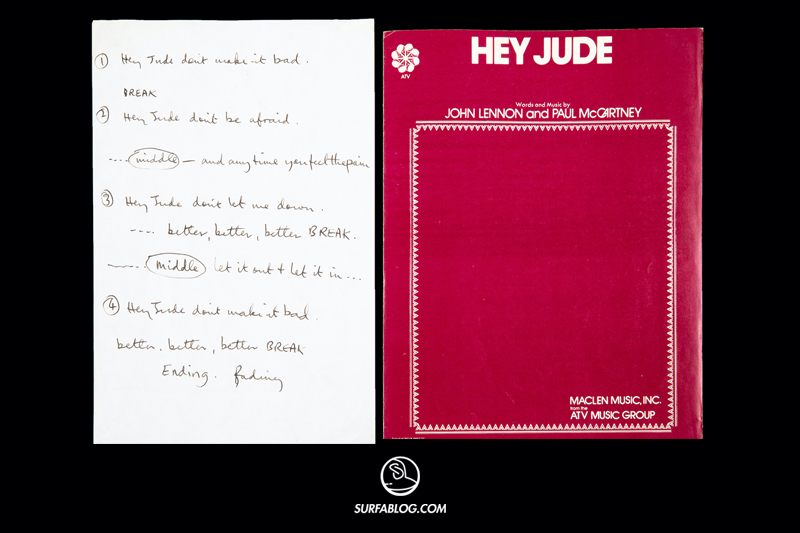 ① Hey Jude don't make it bad.
BREAK
② Hey Jude don't be afraid.
.... middle — and anytime you feel the pain
③ Hey Jude don't let me down.
---- better, better, better BREAK.
middle let it out + let it in ...
④ Hey Jude don't make it bad.
better. better, better BREAK
Ending. fading
ATV
HEY JUDE
Words and Music by
JOHN LENNON and PAUL McCARTNEY
MACLEN MUSIC, INC.
from the
ATV MUSIC GROUP
SL
SURFABLOG.COM